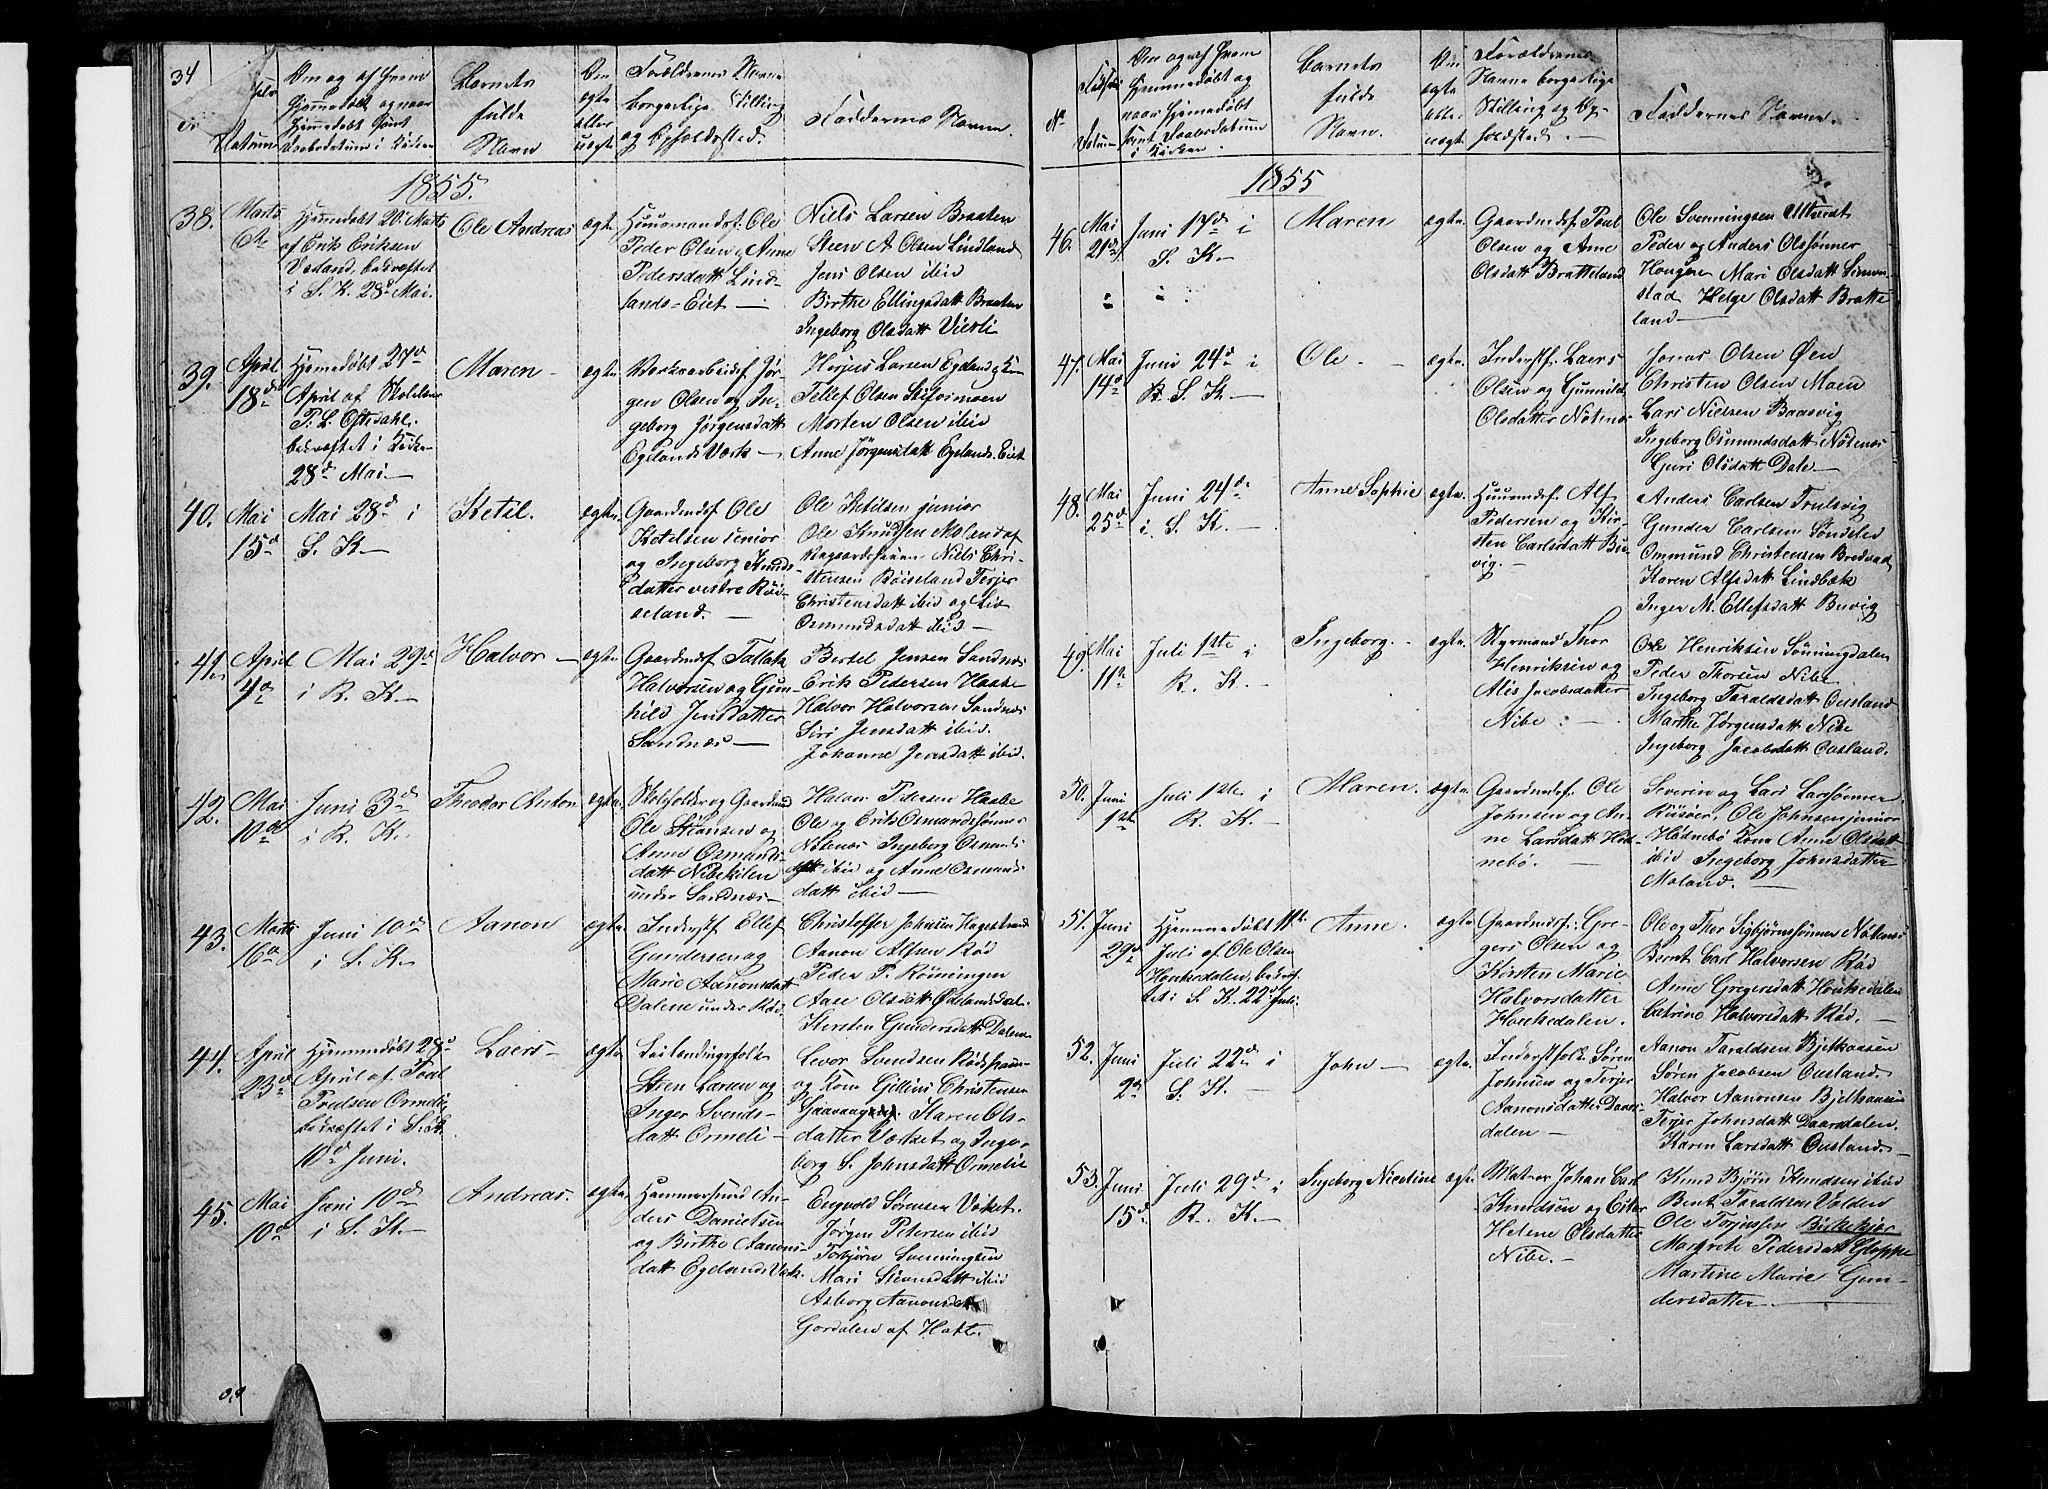 34
Datum
Om og af hvem
Hjemmedøbt og naar
Hjemmedøbt samt
Daabsdatum i Kirken
Barnets
fulde
Navn
Om
ægte
eller
uægte
Forældrenes Navne
borgerlige Stilling
og Opholdssted.
Faddernes Navne.
1855.
38.
Marts
Hjemmedøbt 20. Marts
af Erik Eriksen
bekræftet
i S. K. 28d Mai.
Ole Andreas
ægte
Huusmandsf. Ole
Peder Olsen og Anne
Pedersdatt Lind-
lands-Eiet —
Niels Larsen Braaten
Steen A. Olsen Lindland
Jens Olsen ibid
Birthe Ellingsdatt Braaten
Ingeborg Olsdatt Vierli
39.
April
18d
Hjemmedøbt 27d
April af Skoleler
P. L. Ofsedahl.
bekræftet i Kirken
28d Mai. —
Maren —
ægte
Værksarbeidsf. Jør-
gen Olsen og In-
geborg Jørgensdatt
Egelands Værk —
Larsen Egeland
Tellef Olsen
Morten Olsen ibid
Anne Jørgensdatt Egelands-Eiet
40.
Mai
15d
Mai 28d i
S. K —
Ketil.
ægte
Gaardmdsf Ole
Ketelsen senior
og Ingeborg Knuds-
datter vestre Röi-
seland. —
Ole Ketilsen junior
Ole Knudsen Moland af
Niels Chri-
stensen Röiseland Terjer
Christensdatt ibid og Liv
Osmundsdatt ibid —
41.
April
4d
Mai 29d
i R. K. —
Halvor —
ægte
Gaardmdsf Tallak
Halvorsen og Gun-
hild Jensdatter
Sandnæs —
Bertel Jensen Sandnæs
Erik Pedersen Haabe
Halvor Halvorsen Sandnæs
Siri Jensdatt ibid.
Johanne Jensdatt ibid.
42.
Mai
10de
Juni 3d
i R. K.
Theodor Anton
ægte
Skoleholder og Gaardmd
Ole Steansen og
Anne Osmunds-
datt Nibekilen
under Sandnæs —
Halvor Pedersen Haabe
Ole og Erik Osmundssønner
Nótenæs Ingeborg Osmunds
datt ibid og Anne Osmunds
datt ibid —
43.
Marts
16d
Juni 10d
i S. K. —
Aanon
ægte
Inderstf Ellef
Gundersen og
Marie Aanonsdatt
Dalene under Rød
Christoffer Johnsen Hagestrand
Aanon Alfsen Rød
Peder P. Röiningen
Aase Olsdatt Ødelandsdal.
Kersten Gundersdatt Dalene
44.
April
23d
Hjemmedøbt 28d
April af Poul
Ormeli
bekræftet i S. K.
10d Juni.
Laers —
ægte
Leilændingsfolk
Steen Larsen og
Inger Svends-
datt Ormeli —
Levor Svendsen
og Kone Gillius Christensen
Karen Ols-
datter Værket og Inge-
borg S. Johnsdatt Ormelie
45.
Mai
10d
Juni 10d
i S. K. —
Andreas.
ægte
Hammersmd An-
ders Danielsen
og Birthe Aanons-
datt Egelands Værk.
Engvold Sörensen Værket.
Jørgen Petersen ibid
Torbjørn Svenningsen
Mari Steensdatt ibid
Asborg Aanonsdatt
Gordalen af Holt.
No
Fødsels
Datum
Om og af hvem
Hjemmedøbt og
naar Hjemmedøbt
samt Daabsdatum
i Kirken.
Barnets
fulde
Navn.
Om
ægte
eller
uægte
Forældrenes
Navne borgerlige
Stilling og Op-
holdssted. —
Faddernes Navne.
1855
46.
Mai
21d
Juni 17d i
S. K. —
Maren
ægte
Gaardmdsf. Poul
Olsen og Anne
Olsdatt Bratteland
Ole Svenningsen
Peder og Anders Olssønner
Mari Olsdatt Simon-
stad Helge Olsdatt Bratte
land —
47.
Mai
14d
Juni 24d i
S. K. —
Ole —
ægte
Inderstf. Laers
Olsen og Gunnild
Olsdatter Nótenæs
Jonas Olsen Øen
Christen Olsen Moen
Lars Nielsen Baasvig
Ingeborg Osmundsdatt Nótenæs
Guri Olsdatt Dale —
48.
Mai
25d
Juni 24d
i. S. K. —
Anne Sophie
ægte.
Huusmdsf. Alf
Pedersen og Kir-
sten Carlsdatt Bu-
vig. —
Anders Carlsen Trulsvig
Gunder Carlsen Sóndeled
Ommund Christensen Bredvad
Karen Alfsdatt Lindbæk
Inger M. Ellefsdatt Buvig
49.
Mai
11te
Juli 1ste i
R. K. —
Ingeborg. —
ægte.
Styrmand Thor
Henriksen og
Alis Jacobsdatter
Nibe. —
Ole Henriksen Sönningdalen
Peder Thorsen Nibe
Ingeborg Taraldsdatt Ousland
Marthe Jørgensdatt Nibe
Ingeborg Jacobsdatt Ousland.
50.
Juni
1ste
Juli 1ste i
R. K. —
Maren.
ægte.
Gaardmdsf. Ole
Johnsen og An-
ne Larsdatt Hød-
nebø.
Severin og Lars Larssønner
Risöer. Ole Johnsen junior
Hødnebø Kone Anne Olsdatt
ibid Ingeborg Johnsdatter
Moland. —
51.
Juni
29d
Hjemmedøbt 11te
Juli af Ole Olsen
Houkedalen, bekræf-
tet i S. K. 22d Juli.
Anne —
ægte
Gaardmdsf: Gre-
gers Olsen og
Kirsten Marie
Halvorsdatter
Houkedalen.
Ole og Thor Sigbjørnssønner Nótenæs
Bernt Carl Halvorsen Rød
Anne Gregersdatt Houkedalen
Catrine Halvorsdatt Rød. —
52.
Juni
2d
Juli 22d i
S. K. —
John —
ægte.
Inderstfolk Sören
Johnsen og Terjer
Aanonsdatter Daars-
dalen —
Aanon Taraldsen Bjelkaasen
Søren Jacobsen Ousland.
Halvor Aanonsen Bjelkaasen
Terjer Johnsdatt Daarsdalen.
Karen Larsdatt Ousland. —
53.
Juni
15d
Juli 29d i
R. K. —
Ingeborg Nicoline
ægte
Matros Johan Carl
Knudsen og
Helene Olsdatter
Nibe. —
Knud Bjørn Knudsen ibid
Bent Taraldsen Volden
Ole Torjussen Birkekjer
Margrete Pedersdatt Gloppe
Martine Marie Gun-
dersdatter —